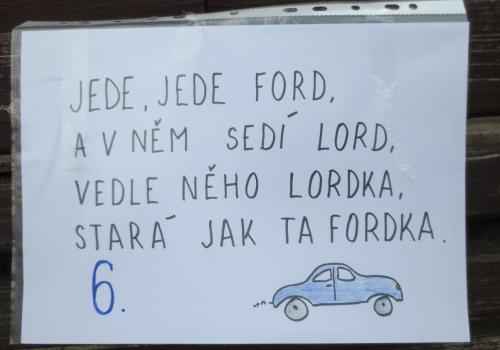 JEDE, JEDE FORD,
A V NĚM SEDÍ LORD,
VEDLE NĚHO LORDKA,
STARÁ JAK TA FORDKA.
6.